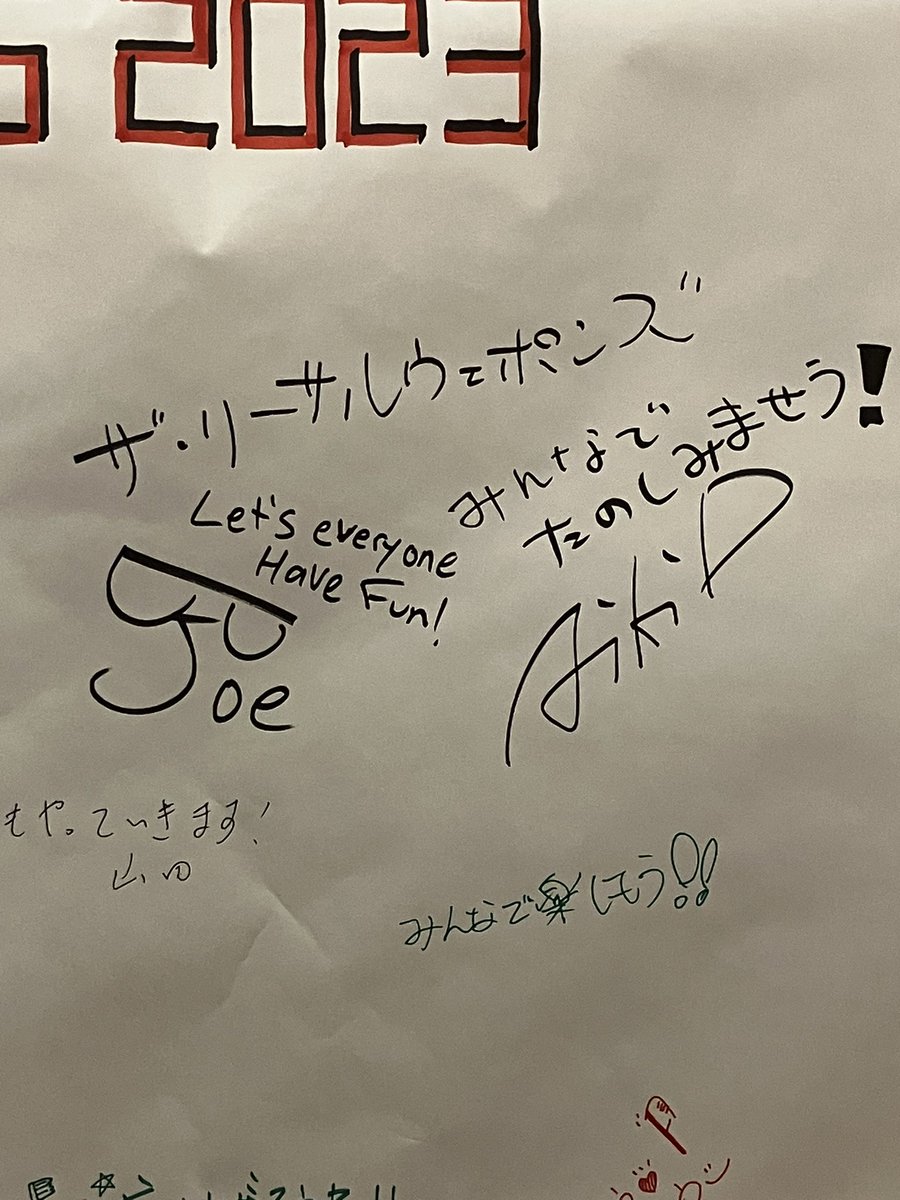 2023
ザ・リーサルウェポンズ
みんなで
たのしみませう!
Let's everyone
Have Fun!
Joe
Aiki D
もやっていきます!
山田
みんなで楽しもう!!